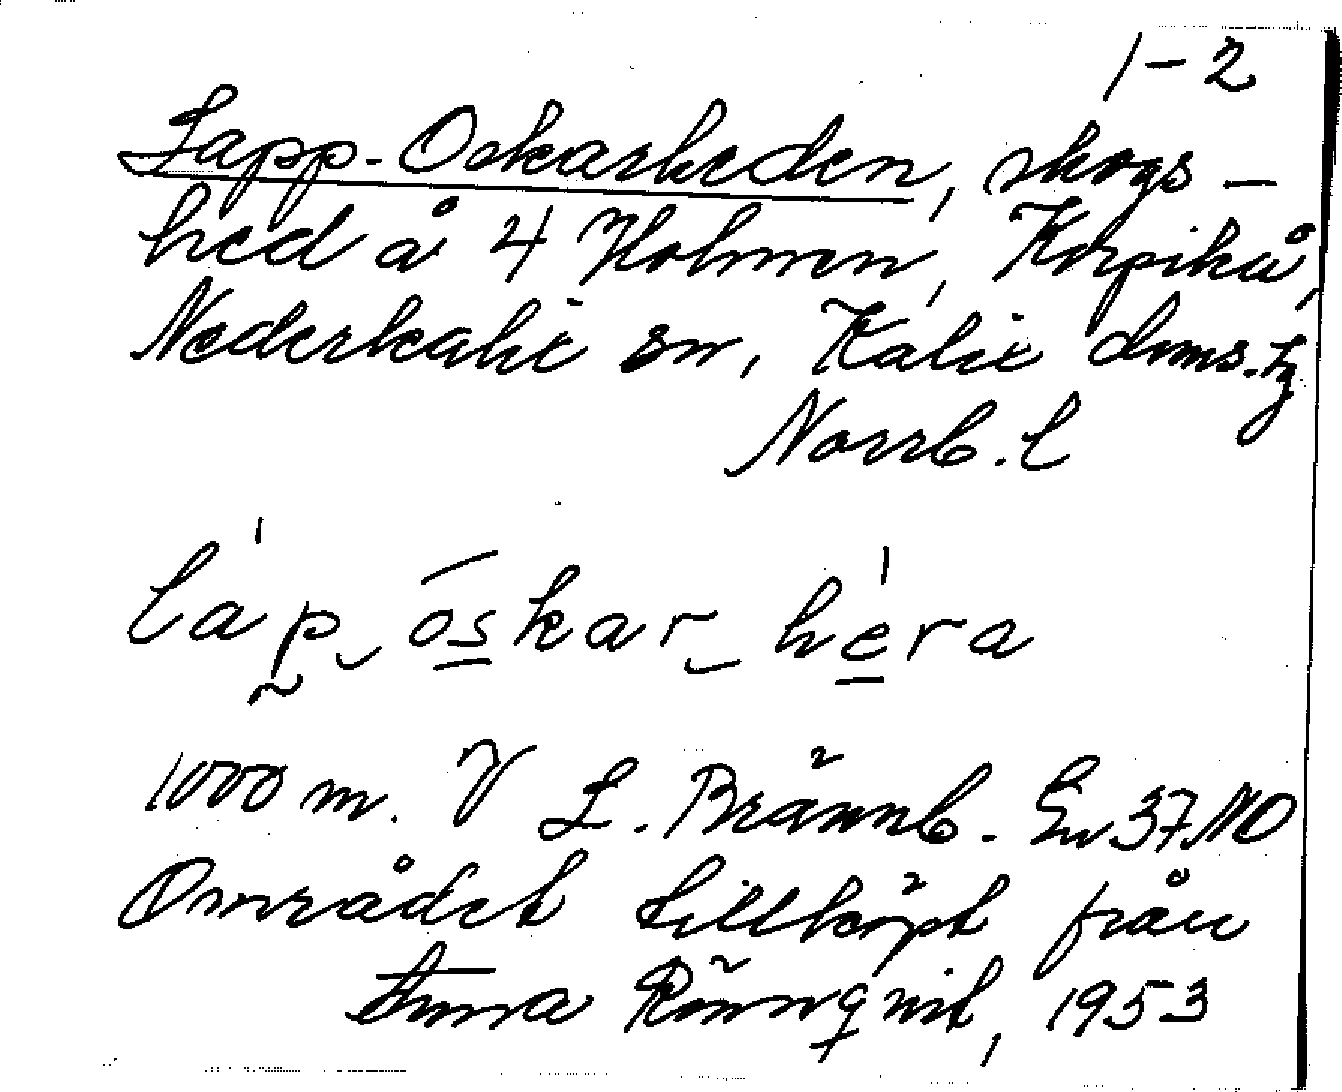 1-2
Lapp-Oskarheden, skogs-
hed å 4 Holmen, Korpikå,
Nederkalix sn, Kalix doms.tg
Norrb. l
láp óskar héra
1000 m. V L. Brännb. Ev 37 NO
Området tillköpt från
Anna Rönnqvist, 1953